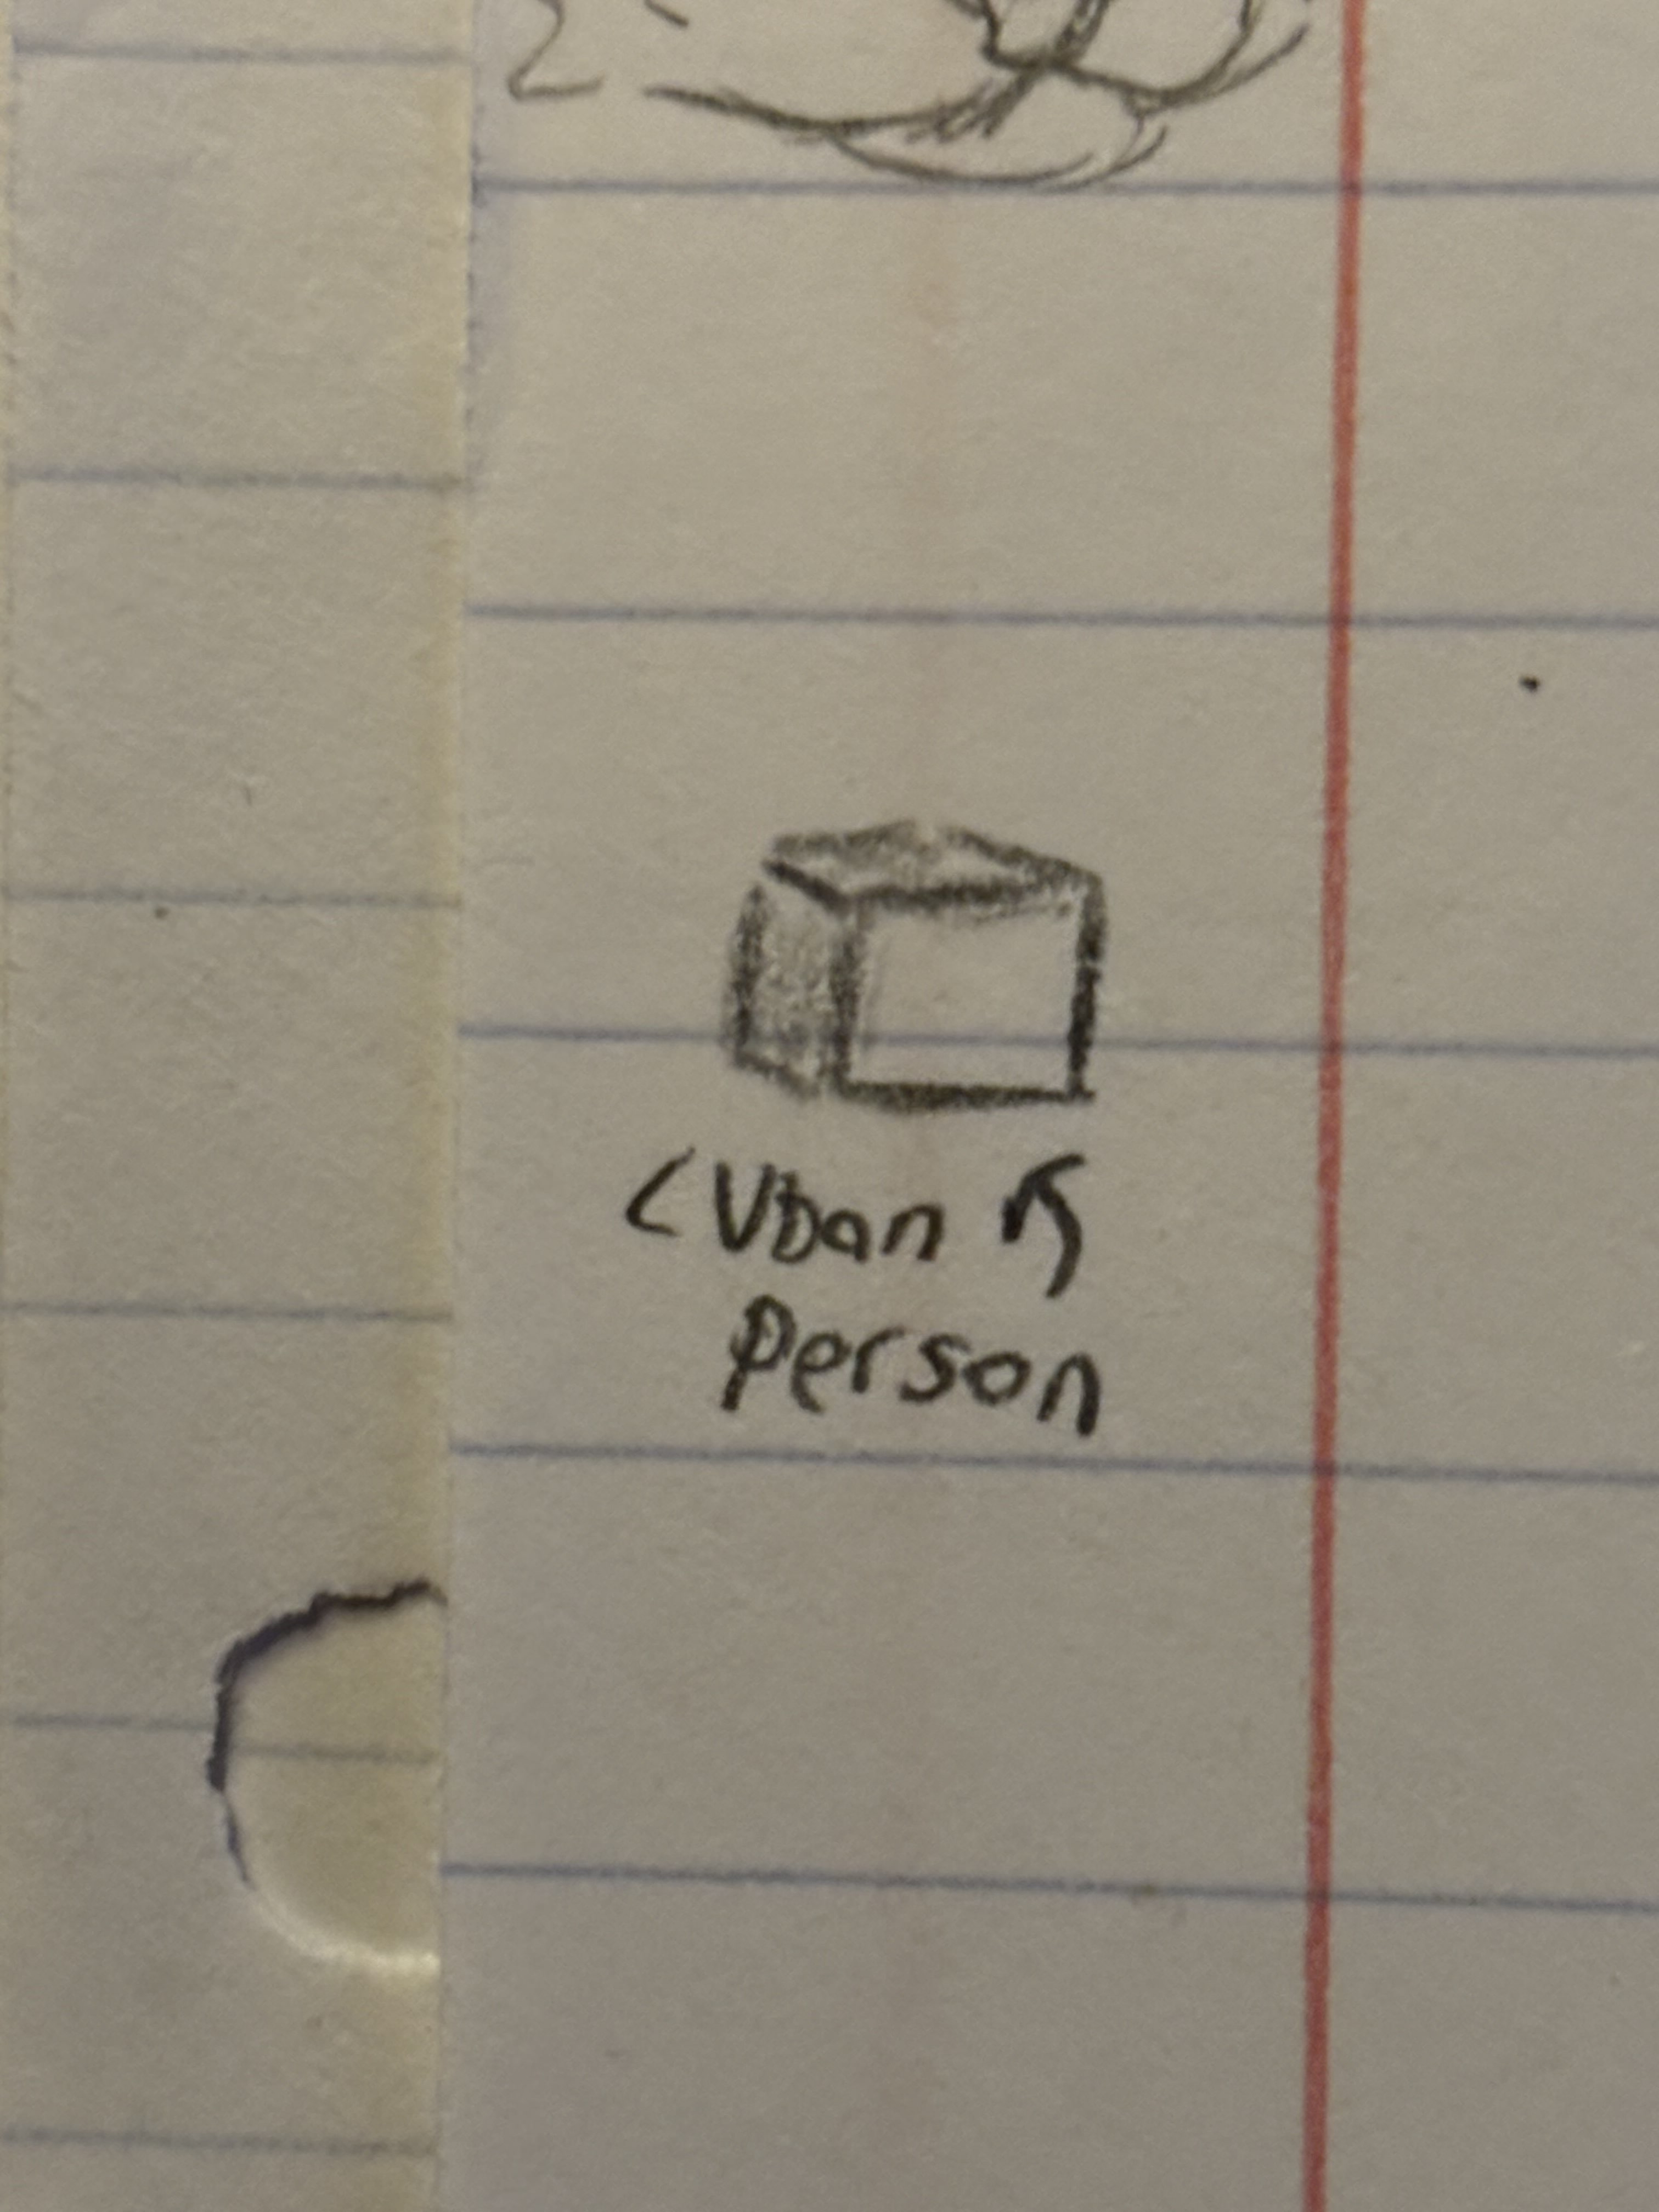 Cuban
Person